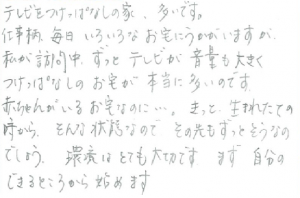 テレビをつけっぱなしの家、多いです。
仕事柄 毎日 いろいろな お宅にうかがいますが、
私が訪問中、ずっと テレビが 音量も大きく
つけっぱなしの お宅が 本当に 多いのです。
赤ちゃんが いる お宅なのに…。きっと、生まれたての
時から、そんな 状態なので その先も ずっと そうなの
でしょう。 環境は とても 大切です まず 自分の
できる ところから 始めます